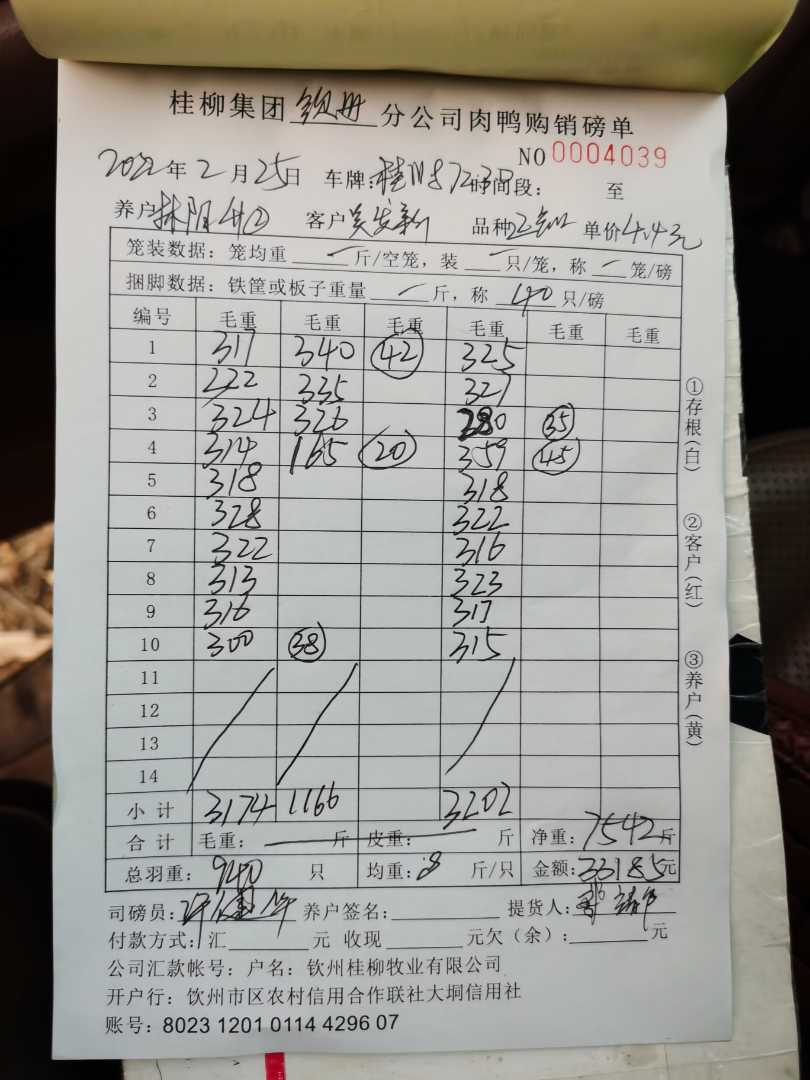 桂柳集团 钦州 分公司肉鸭购销磅单
NO 0004039
2022年 2 月 25日 车牌: 时间段: 至
养户 客户 品种 单价 4.4元
笼装数据: 笼均重 一 斤/空笼, 装 一 只/笼, 称 一 笼/磅
捆脚数据: 铁筐或板子重量 一 斤, 称 40 只/磅
编号 毛重 毛重 毛重 毛重 毛重 毛重
1 317 340 42 325
2 322 335 327
3 324 326 280 35
4 314 165 20 359 45
5 318 318
6 328 322
7 322 316
8 313 323
9 316 317
10 300 38 315
11
12
13
14
小计 3174 1166 3202
合计 毛重: 斤 皮重: 斤 净重: 7542斤
总羽重: 940 只 均重: 8 斤/只 金额: 33185元
司磅员: 养户签名: 提货人:
付款方式: 汇 元 收现 元欠(余): 元
公司汇款帐号: 户名: 钦州桂柳牧业有限公司
开户行: 钦州市区农村信用合作联社大垌信用社
账号: 8023 1201 0114 4296 07
①存根(白)
②客户(红)
③养户(黄)